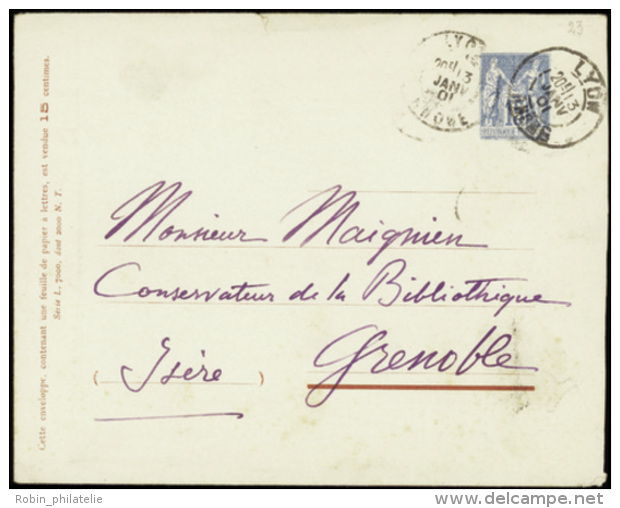 23
LYON
20E/13
JANV
01
RHONE
LYON
20E/13
JANV
01
RHONE
Monsieur Maignien
Conservateur de la Bibliothèque
Grenoble
( Isère )
Cette enveloppe, contenant une feuille de papier à lettres, est vendue 15 centimes.
Série L, 7000, dont 2000 N. T.
Robin_philatelie
www.delcampe.net